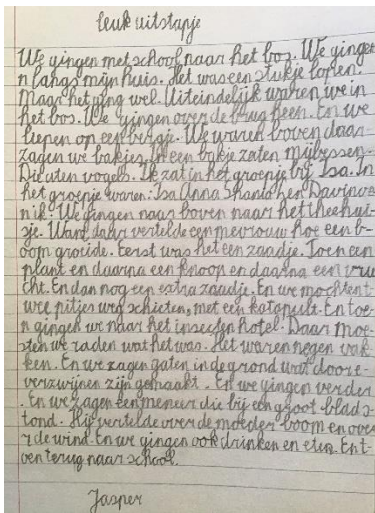 leuk uitstapje
We gingen met school naar het bos. We ginge
n langs mijn huis. Het was een stukje lopen.
Maar het ging wel. Uiteindelijk waren we in
het bos. We gingen over de brug heen. En we
liepen op een bergje. We waren boven daar
zagen we bakjes. In een bakje zaten mijbessen.
Die aten vogels. Ik zat in het groepje bij Isa. In
het groepje waren: Isa Anna Shania hen Davino en
ik. We gingen naar boven naar het theehui-
sje. Want daar vertelde een mevrouw hoe een b-
oom groeide. Eerst was het een zaadje. Toen een
plant en daarna een knoop en daarna een vru
cht. En dan nog een extra zaadje. En we mochten t
wee pitjes weg schieten, met een katapult. En toe-
n gingen we naar het insecten hotel. Daar moe-
sten we raden wat het was. Het waren negen vak
ken. En we zagen gaten in de grond wat door e
verzwijnen zijn gemaakt. En we gingen verder
. En we zagen een meneer die bij een groot blad s-
tond. Hij vertelde over de moeder boom en ove
r de wind. En we gingen ook drinken en eten. En t-
oen terug naar school.
Jasper